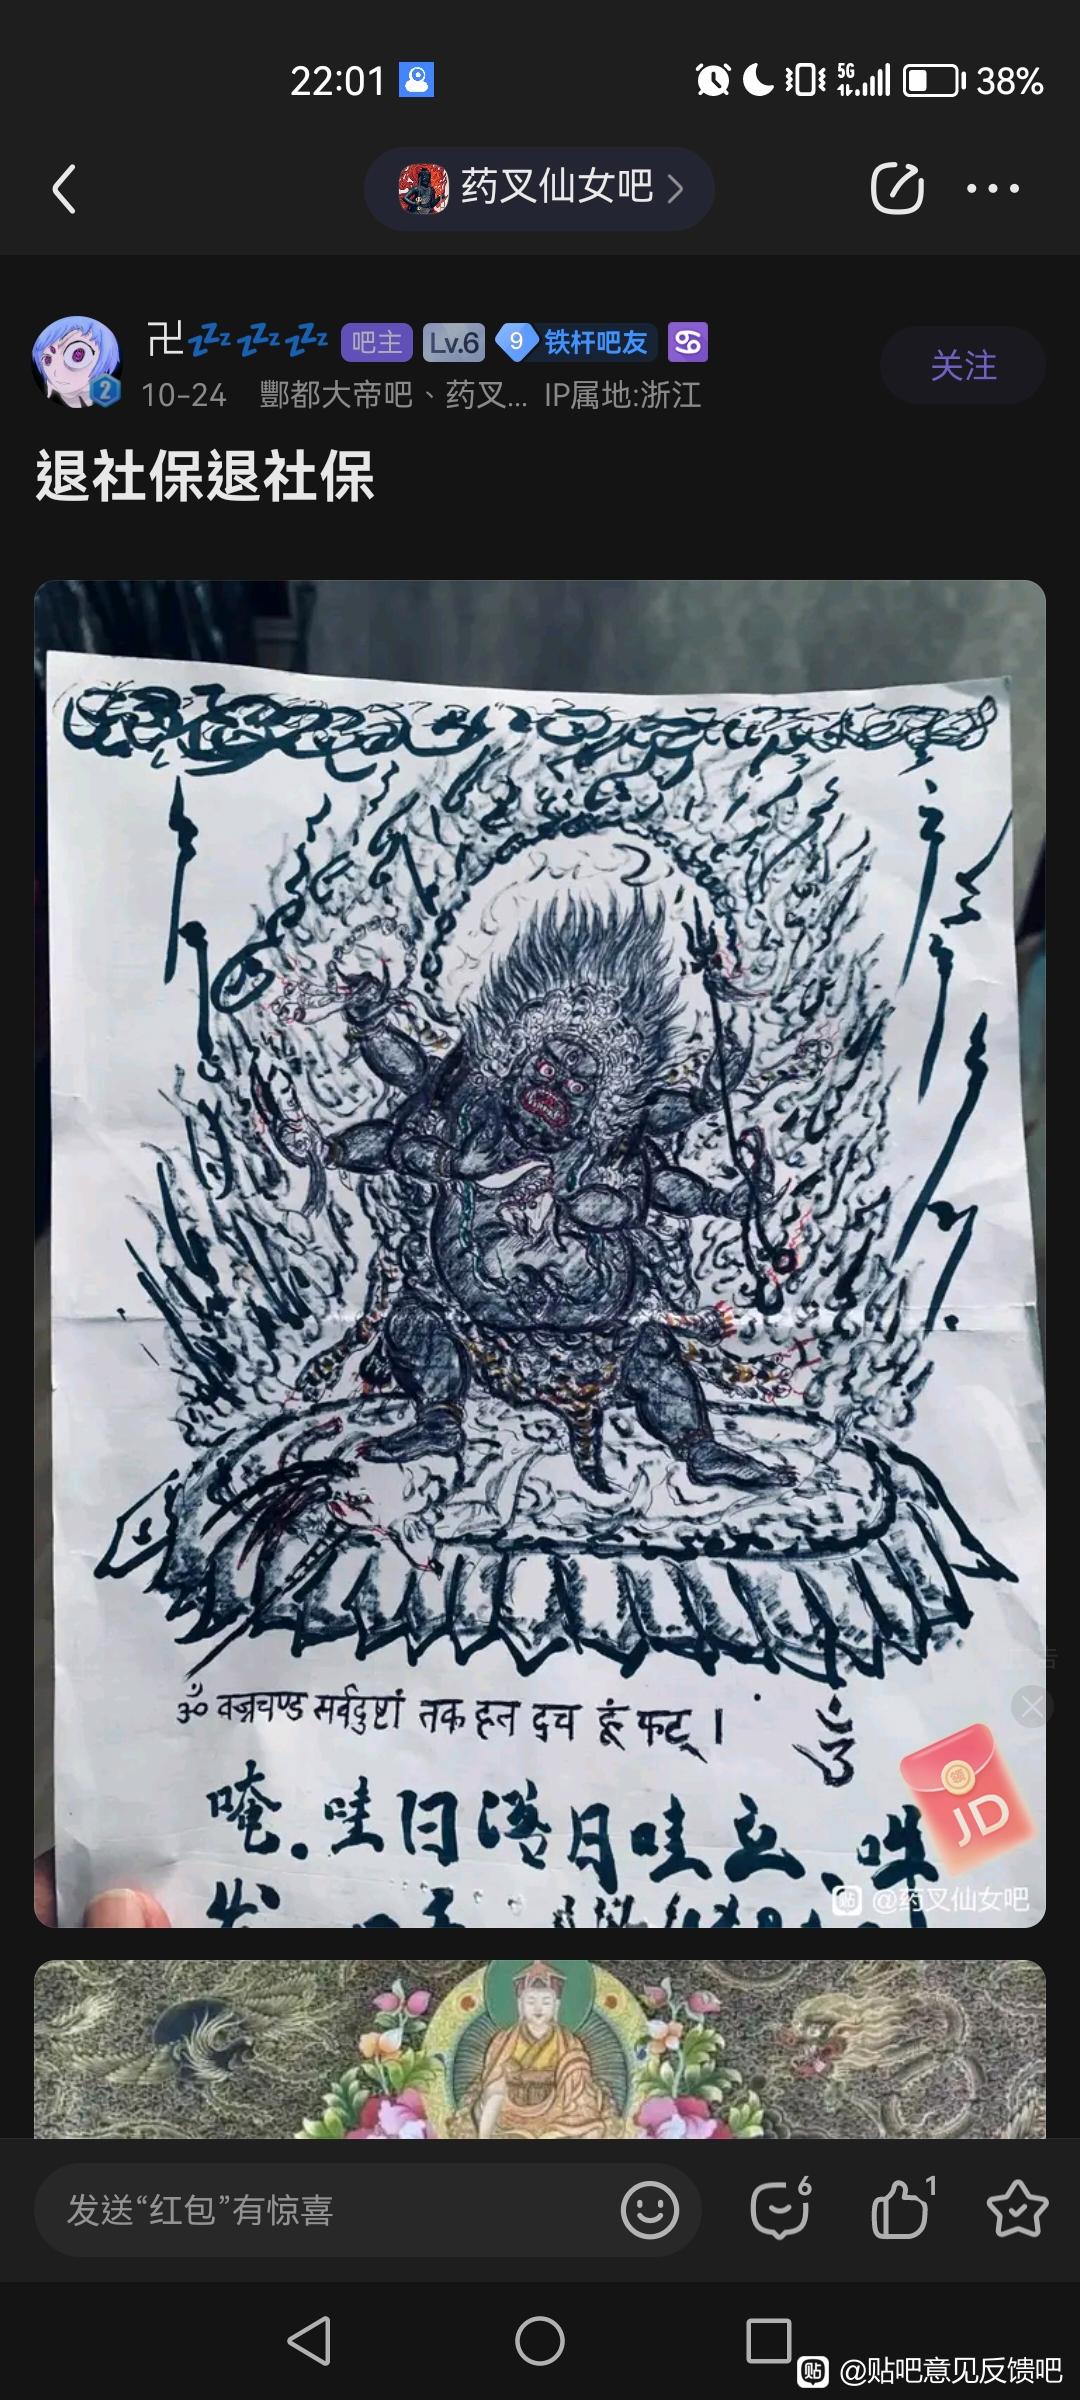 22:01 5G 38%
药叉仙女吧
卍💤💤💤 吧主 Lv.6 9 铁杆吧友 ♋
2
10-24 酆都大帝吧、药叉... IP属地:浙江
关注
退社保退社保
ॐ वज्रचण्ड सर्वदुष्टां तक हन दच हूं फट् ।
唵.哇日
月哇
领
JD
@药叉仙女吧
发送“红包”有惊喜
6
1
@贴吧意见反馈吧